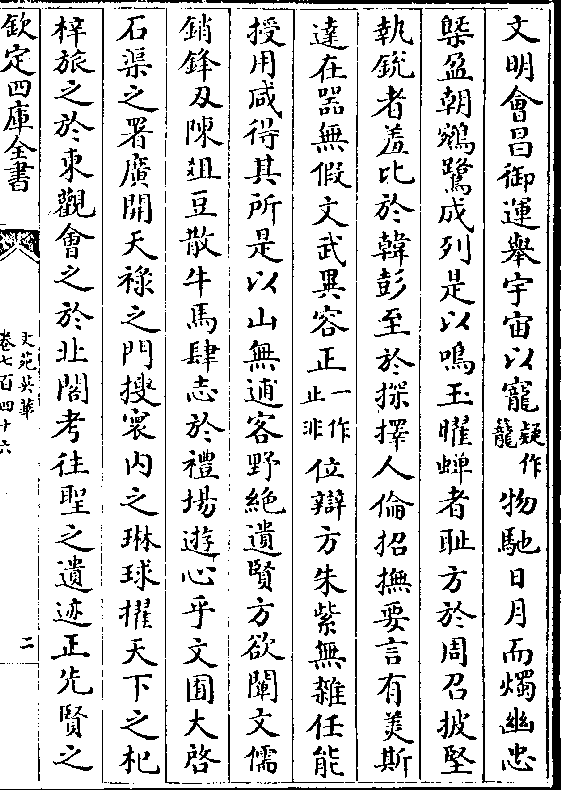 文明會昌御運舉宇宙以寵疑作籠物馳日月而燭幽忠
槩盈朝鵷鷺成列是以鳴玉曜蟬者耻方於周召披堅
執銳者羞比於韓彭至於採擇人倫招撫要言有美斯
達在器無假文武異容正一作止非位辯方朱紫無雜任能
授用咸得其所是以山無逋客野絶遺賢方欲闡文儒
銷鋒刄陳俎豆散牛馬肆志於禮場遊心乎文囿大啓
石渠之署廣開天祿之門搜寰内之琳球擢天下之杞
梓旅之於東觀會之於北閣考往聖之遺迹正先賢之
欽定四庫全書
文苑英華
卷七百四十六
二